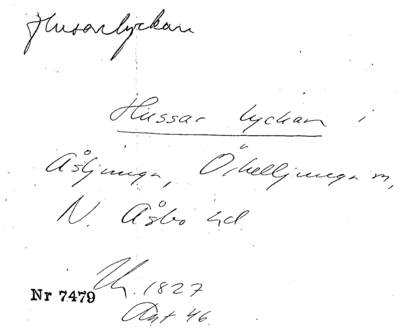 Husarlyckan
Hussar lyckan i
Åsljunga, Örkelljunga sn,
N. Åsbo hd.
Uh. 1827
Nr 7479
Akt 46